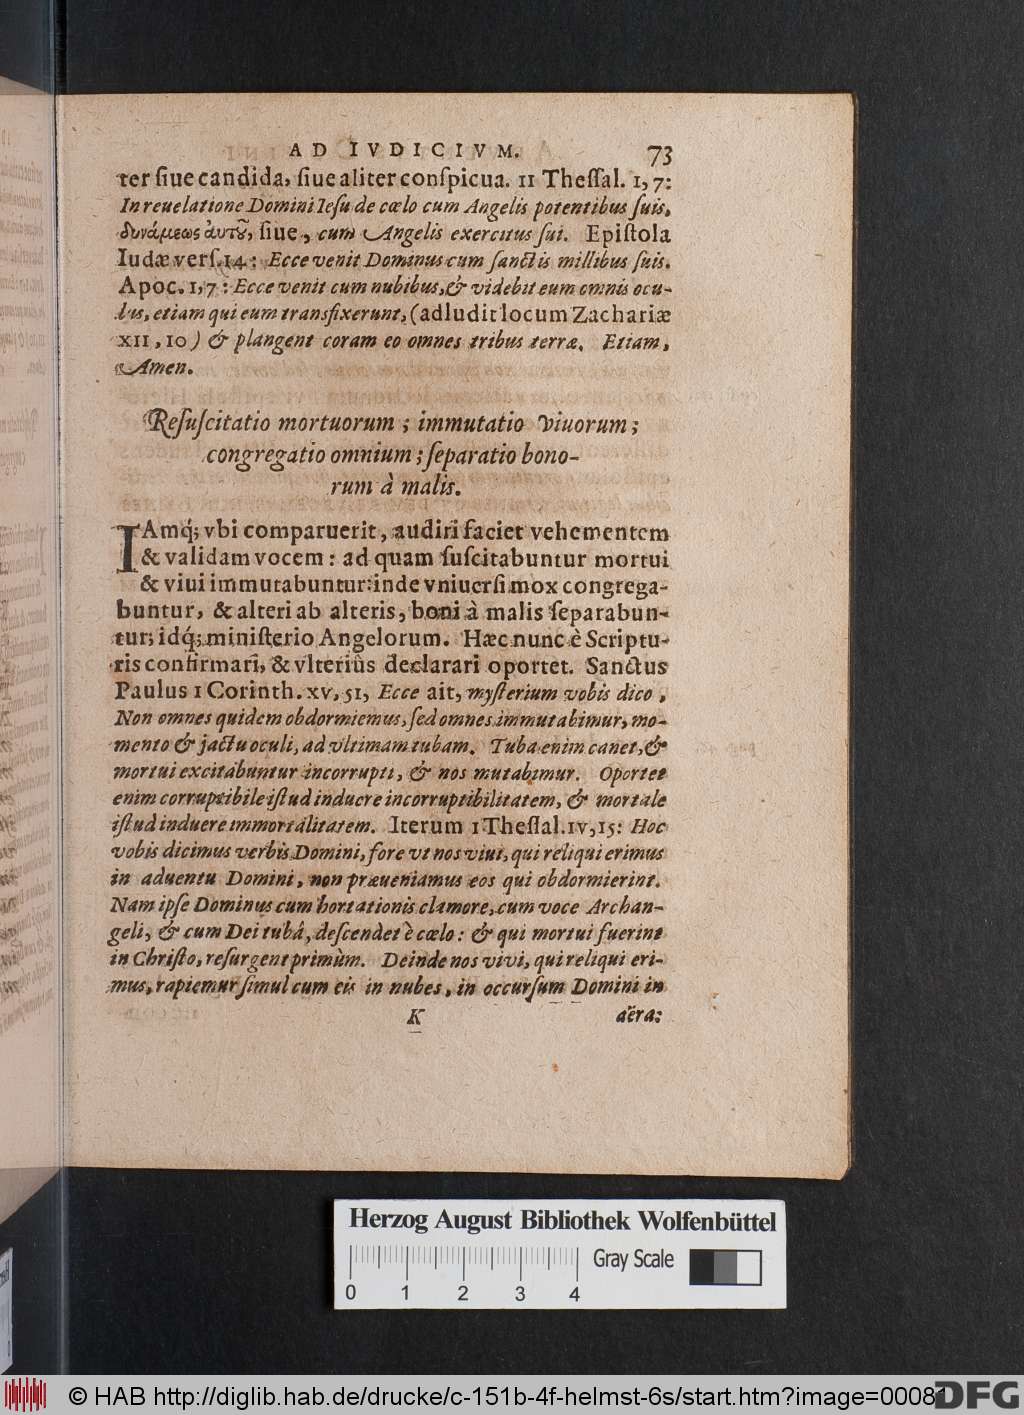 AD IVDICIVM. 73
ter ſiue candida, ſiue aliter conſpicua. II Theſſal. 1, 7:
In reuelatione Domini Ieſu de cœlo cum Angelis potentibus ſuis,
δυνάμεως ἀυτοῦ, ſiue, cum Angelis exercitus ſui. Epiſtola
Iudæ verſ. 14: Ecce venit Dominus cum ſanctis millibus ſuis.
Apoc. 1, 7: Ecce venit cum nubibus, & videbit eum omnis ocu-
lus, etiam qui eum transfixerunt, (adludit locum Zachariæ
XII, 10) & plangent coram eo omnes tribus terræ. Etiam,
Amen.
Reſuſcitatio mortuorum; immutatio viuorum;
congregatio omnium; ſeparatio bono-
rum à malis.
IAmq́; vbi comparuerit, audiri faciet vehementem
& validam vocem: ad quam ſuſcitabuntur mortui
& viui immutabuntur: inde vniuerſi mox congrega-
buntur, & alteri ab alteris, boni à malis ſeparabun-
tur; idq́; miniſterio Angelorum. Hæc nunc è Scriptu-
ris confirmari, & vlteriùs declarari oportet. Sanctus
Paulus 1 Corinth. XV, 51, Ecce ait, myſterium vobis dico,
Non omnes quidem obdormiemus, ſed omnes immutabimur, mo-
mento & jactu oculi, ad vltimam tubam. Tuba enim canet, &
mortui excitabuntur incorrupti, & nos mutabimur. Oportet
enim corruptibile iſtud induere incorruptibilitatem, & mortale
iſtud induere immortalitatem. Iterum 1 Theſſal. IV, 15: Hoc
vobis dicimus verbis Domini, fore vt nos viui, qui reliqui erimus
in aduentu Domini, non præueniamus eos qui obdormierint.
Nam ipſe Dominus cum hortationis clamore, cum voce Archan-
geli, & cum Dei tubâ, deſcendet è cœlo: & qui mortui fuerint
in Chriſto, reſurgent primùm. Deinde nos vivi, qui reliqui eri-
mus, rapiemur ſimul cum eis in nubes, in occurſum Domini in
K aëra:
Herzog August Bibliothek Wolfenbüttel
Gray Scale
0 1 2 3 4
© HAB http://diglib.hab.de/drucke/c-151b-4f-helmst-6s/start.htm?image=00081
DFG